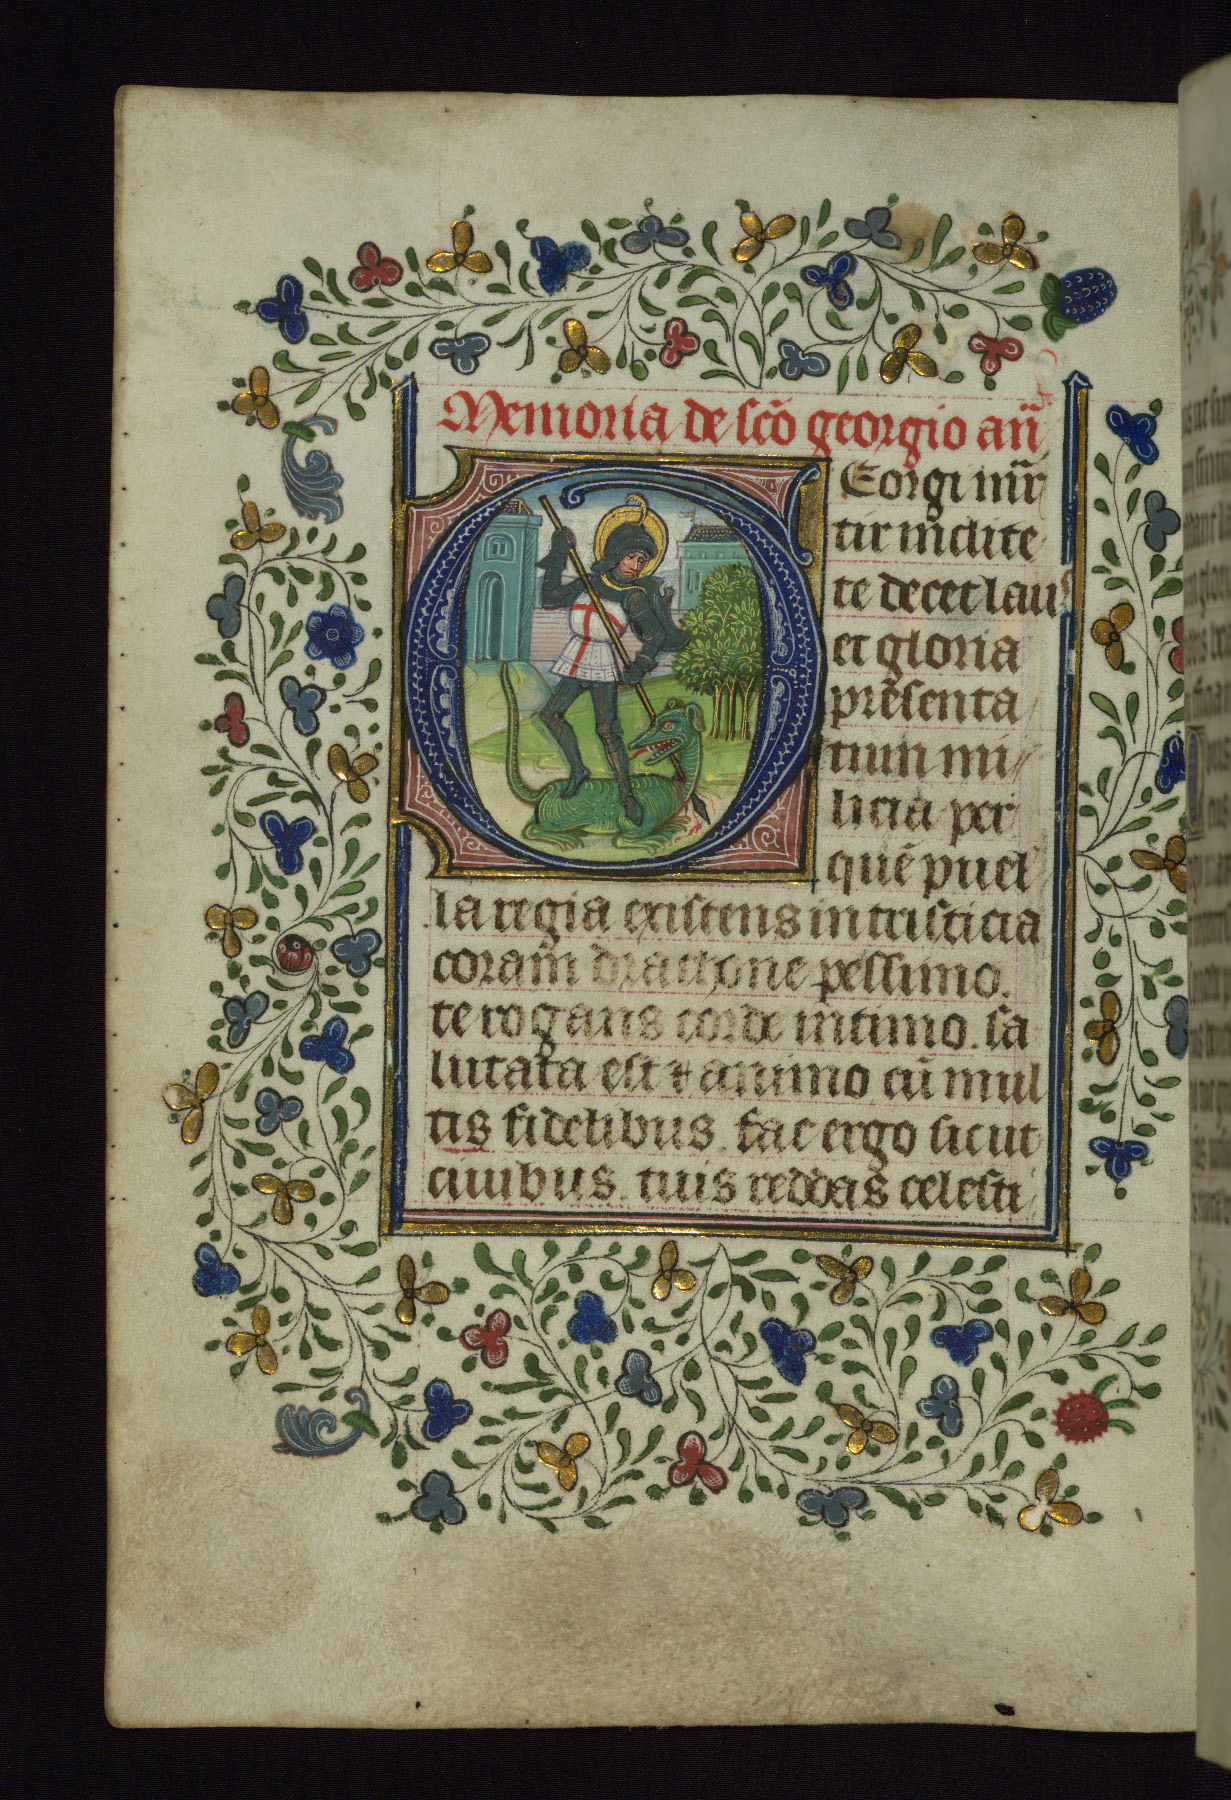 Memoria de sc̄o georgio añ
Eorgi mr̄
tir inclite
te decet laus
et gloria
predẽsenta
tum mi
licia per
quē puel
la regia existens in tristicia
coram̄ drachone pessimo.
te rogans corde intimo. sa
lutata est ⁊ animo cū mul
tis fidelibus. fac ergo sicut
ciuibus. tuis reddas celesti